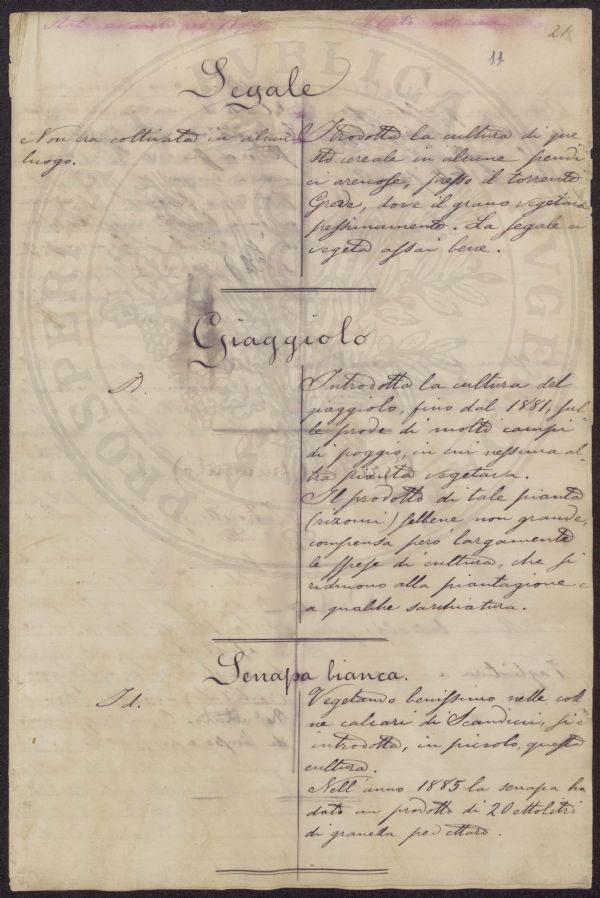 Stato avanti il 18
Stato attuale
21
11
Segale
Non era coltivata in alcun
luogo.
Itrodotta la cultura di que
sto cereale in alcune pendi
ci arenose, presso il torrente
Greve, dove il grano vegetava
pessimamente. La segale ci
vegeta assai bene.
Giaggiolo
Introdotta la cultura del
giaggiolo, fino dal 1881, sul-
le prode di molti campi
di poggio, in cui nessuna al-
tra pianta vegetava.
Il prodotto di tale pianta
(rizomi) sebbene non grande,
compensa però largamente
le spese di cultura, che si
riducono alla piantagione e
a qualche sarchiatura.
Senapa bianca.
Id.
Vegetando benissimo nelle col
ne calcari di Scandicci, si è
introdotta, in piccolo, questa
cultura.
Nell'anno 1885 la senapa ha
dato un prodotto di 20 ettolitri
di granella per ettaro.
PVBLICA